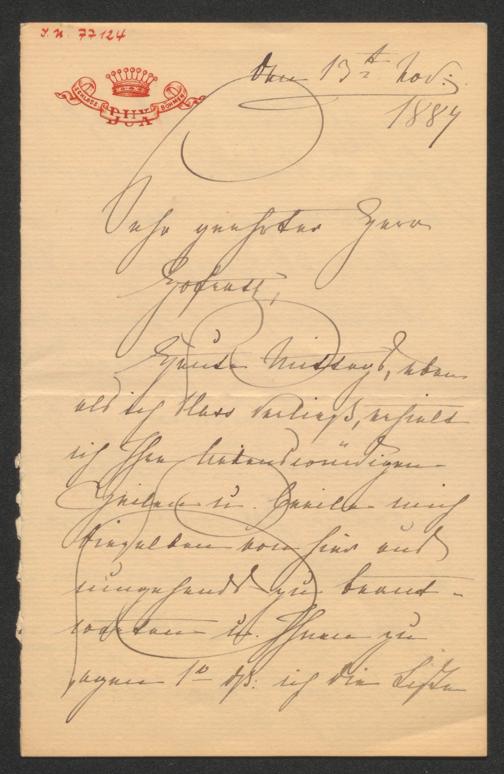 I.N. 77124
SCHLOSS DUX BÖHMEN
Den 13t Nov:
1887
Sehr geehrter Herr
Hofrath,
Heute Mittags, eben
als ich verließ, erhielt
ich Ihre liebenswürdigen
Zeilen u. beeile mich
dieselben von hier aus
umgehendst zu beant-
worten u. Ihnen zu
sagen 1o dß: ich die Liste